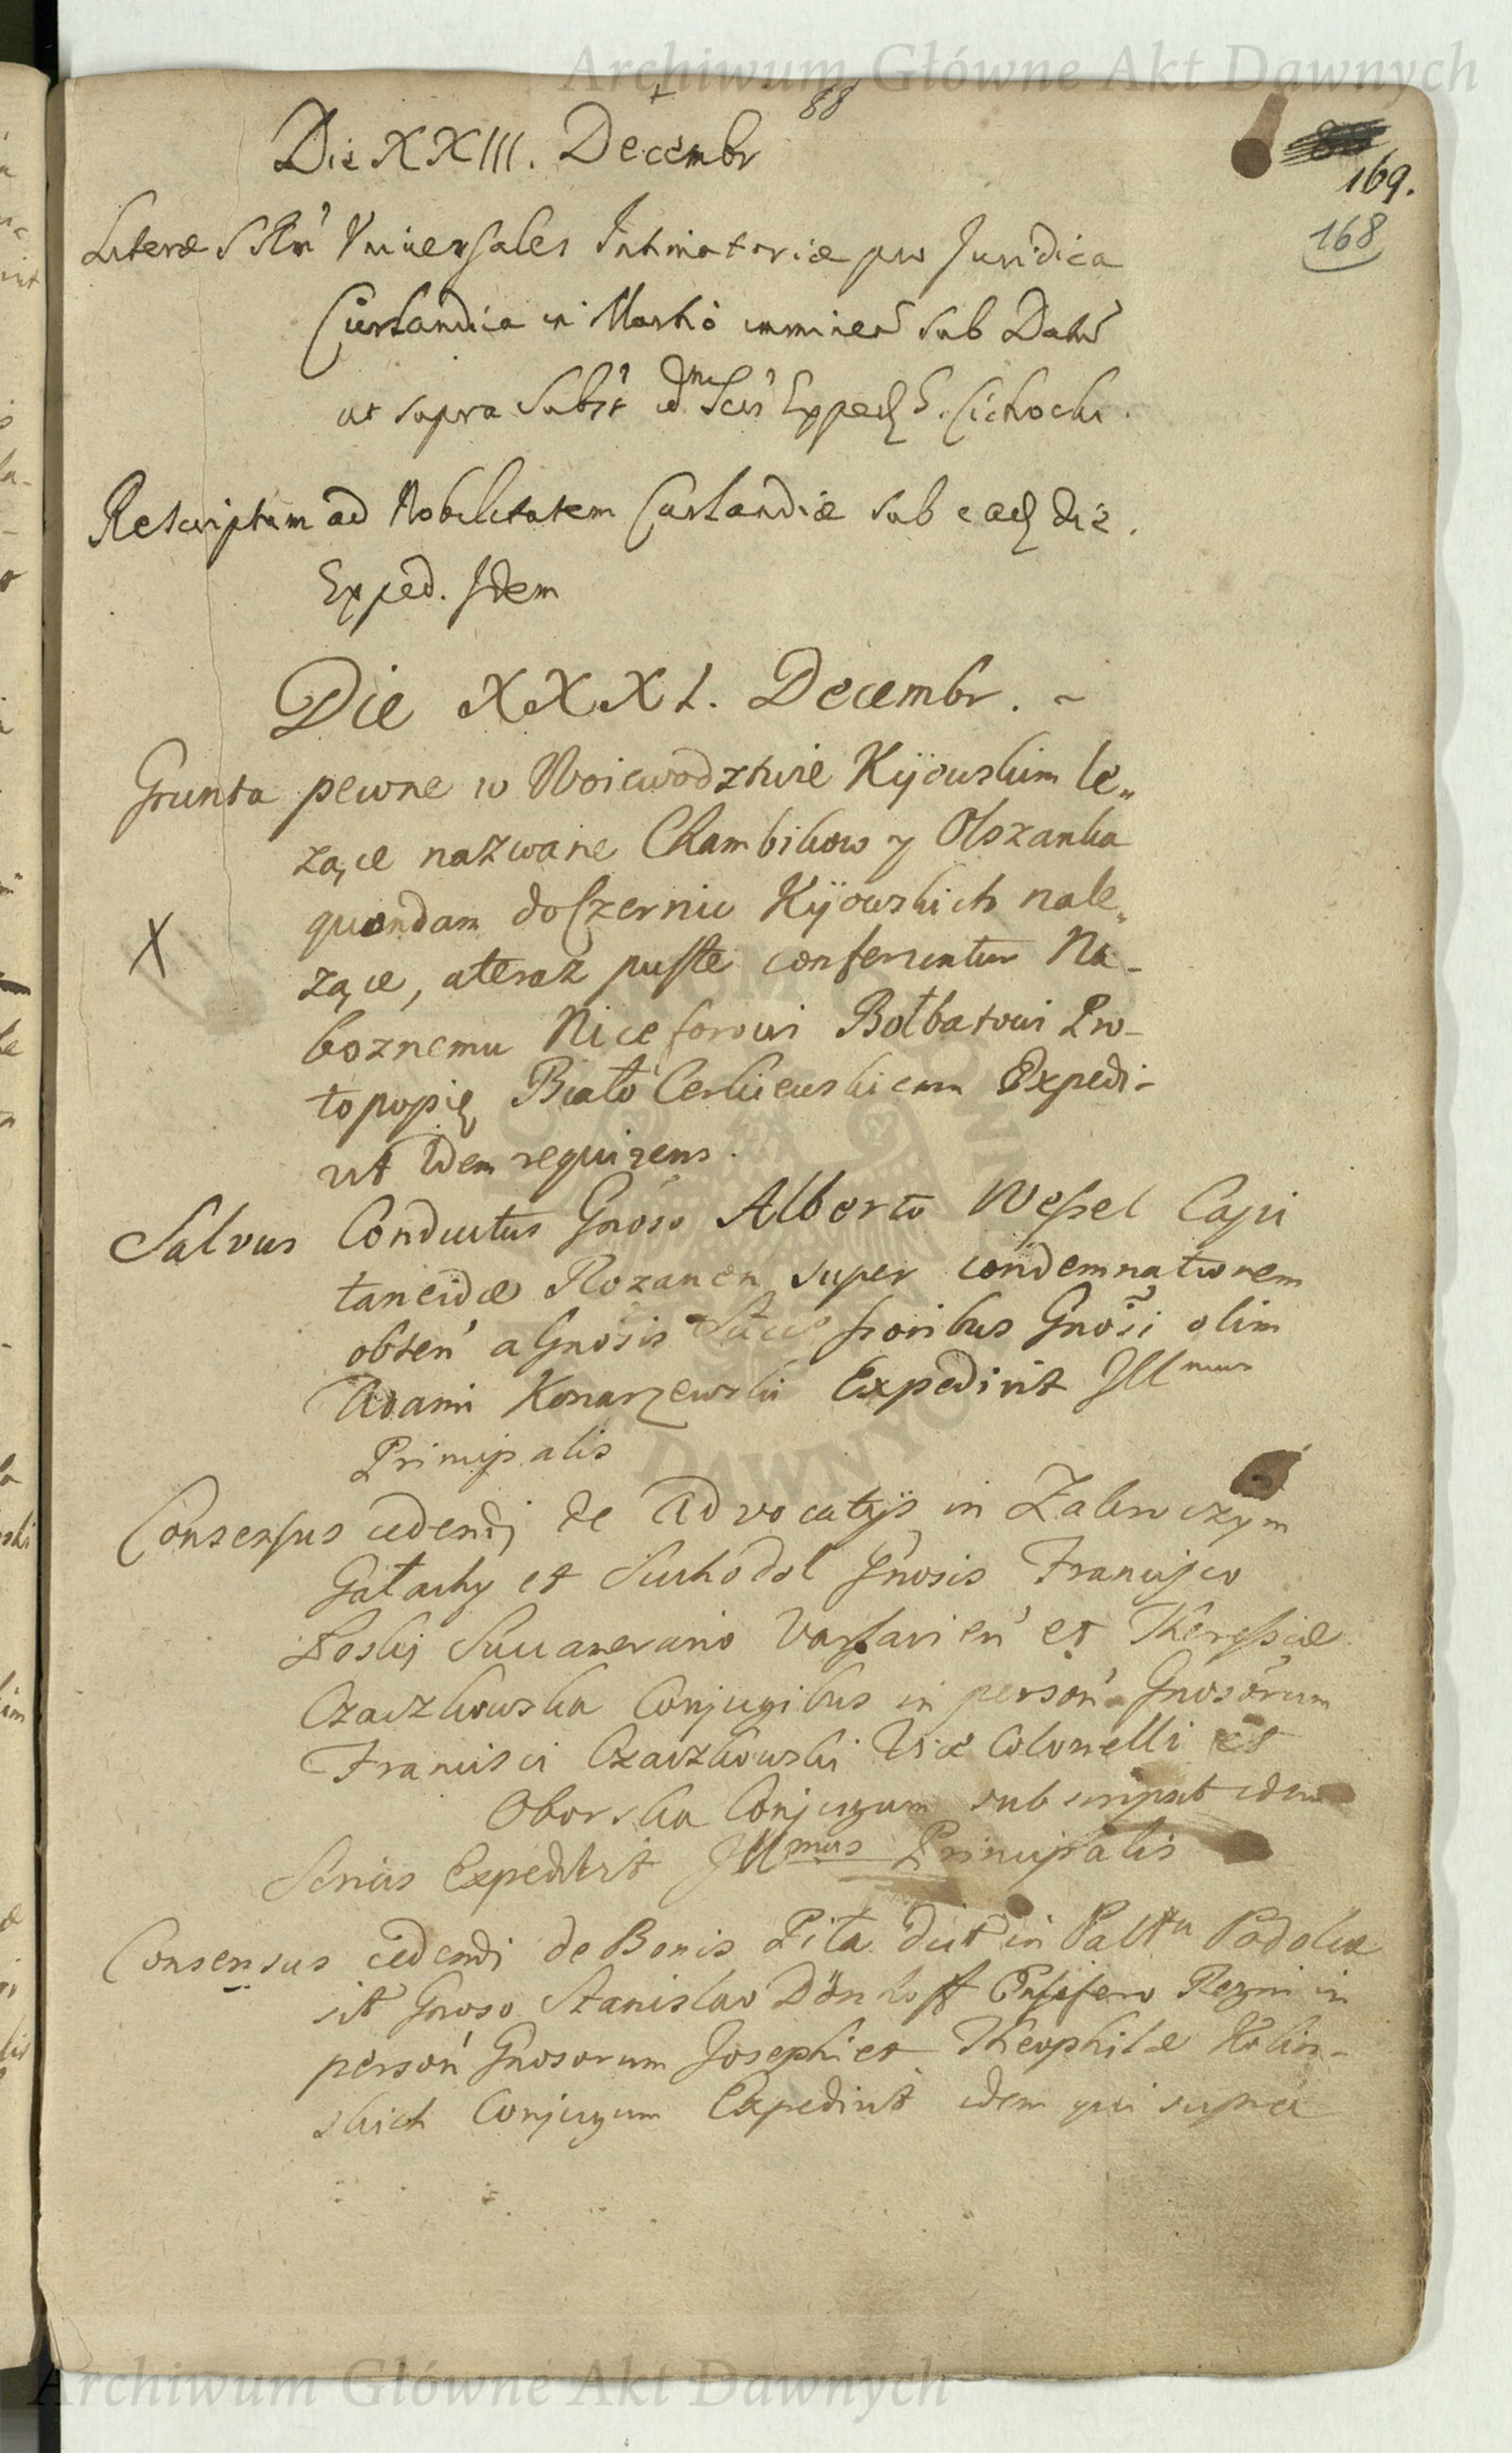 Archiwum Główne Akt Dawnych
88
Die XXIII. Decembr
169.
168
Literæ S R M Universales Intimatoriæ pro Juridica
Curlandica in Martio imminen sub Dato
ut supra Subst Expedit S. Cichocki.
Rescriptum ad Nobilitatem Curlandiæ sub ead die.
Exped. Idem
Die XXXI. Decembr.
Grunta pewne w Woiewodztwie Kijowskim le„
zące nazwane Chambikow y Olszanka
quondam do Czerniu Kijowskich nale„
X
zące, ateraz puste conferuntur Na-
boznemu Niceforowi Bołbatowi Pro-
topopię Biało Cerkiewskiemu Expedi-
vit Idem requirens.
Salvus Conductus Gnoso Alberto Wessel Capi
taneidæ Rozanen super condemnationem
obten a Gnosis Successoribus Gnosi olim
Adami Konarzewski Expedivit Illmus
Principalis
Consensus cedendi de Advocatijs in
Gałachy et Suchodol Gnosis Francisco
Loski Succamerario Varsavien et Theressiæ
Czaczkowska Conjugibus in person Gnosorum
Francisci Czaczkowski Vice Colonelli et
Oborska Conjugum subscripsit idem
Senius Expedivit Illmus Principalis
Consensus cedendi de Bonis Piła dict in Palttu Podoliæ
sit Gnoso Stanislao Dönhoff Ensifero Regni in
person Gnosorum Josephi et Theophilæ
skich Conjugum Expedivit idem qui supra
Archiwum Główne Akt Dawnych